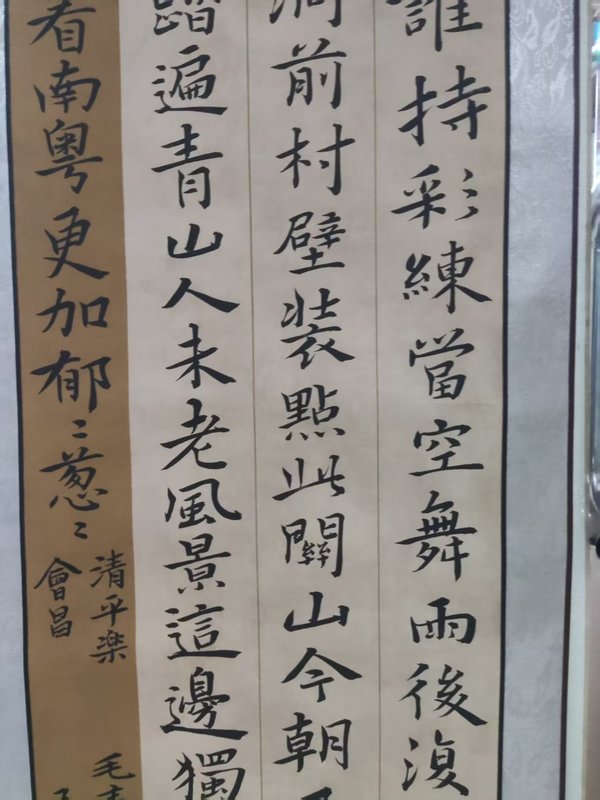 誰持彩練當空舞雨後復
洞前村壁装點此關山今朝
踏遍青山人未老風景這邊獨
看南粵更加郁〻葱〻
清平楽
會昌
毛